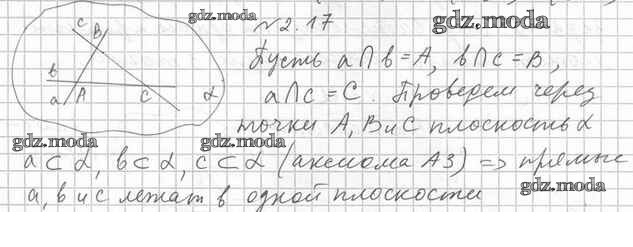 gdz.moda
№2.17
gdz.moda
c B
Пусть a∩b=A, b∩c=B,
b
a A C α
a∩c=C. Проведем через
точки A, B и C плоскость α
gdz.moda gdz.moda
a⊂α, b⊂α, c⊂α (аксиома A3) => прямые
gdz.moda
a, b и c лежат в одной плоскости